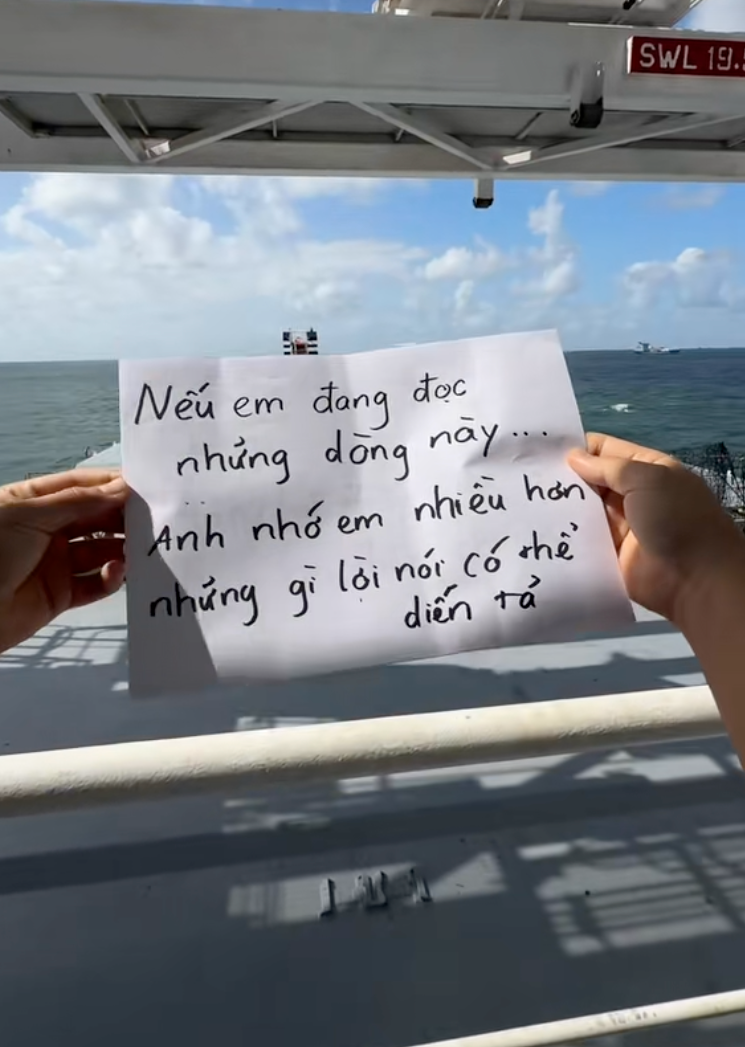 SWL 19.
Nếu em đang đọc
những dòng này...
Anh nhớ em nhiều hơn
những gì lời nói có thể
diễn tả